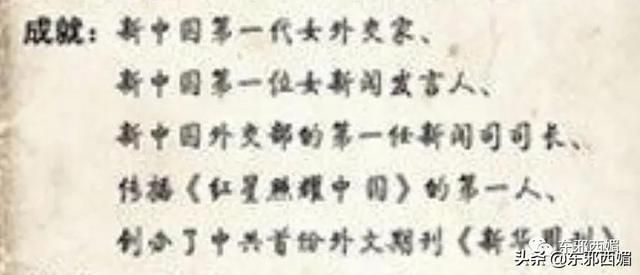 成就：新中国第一代女外交家、
新中国第一位女新闻发言人、
新中国外交部的第一任新闻司司长、
传播《红星照耀中国》的第一人、
创办了中共首份外文期刊《新华周刊》
东邪西媚
头条@东邪西媚